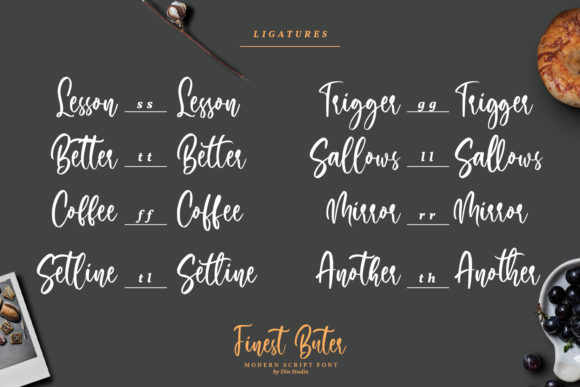 LIGATURES
Lesson ss Lesson
Trigger gg Trigger
Better tt Better
Sallows ll Sallows
Coffee ff Coffee
Mirror rr Mirror
Setline tl Setline
Another th Another
Finest Buter
MODERN SCRIPT FONT
by Din Studio